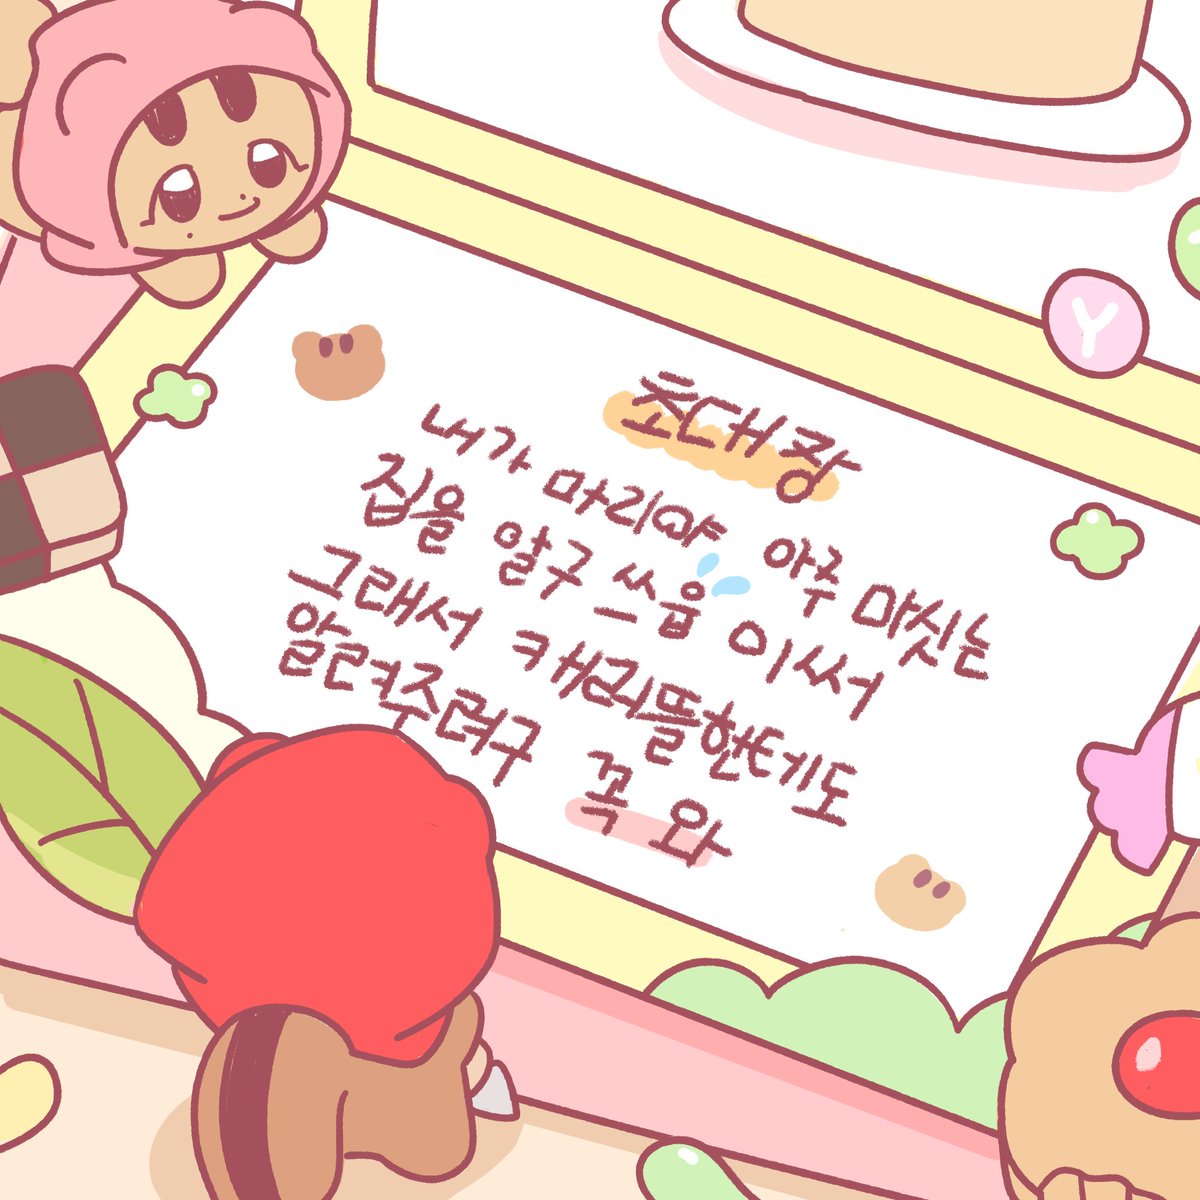 초대장
내가 마리야 아주 마싯는
집을 알구 쓰읍 이써
그래서 캐러뜰한테도
알려주려구 꼭 와
Y